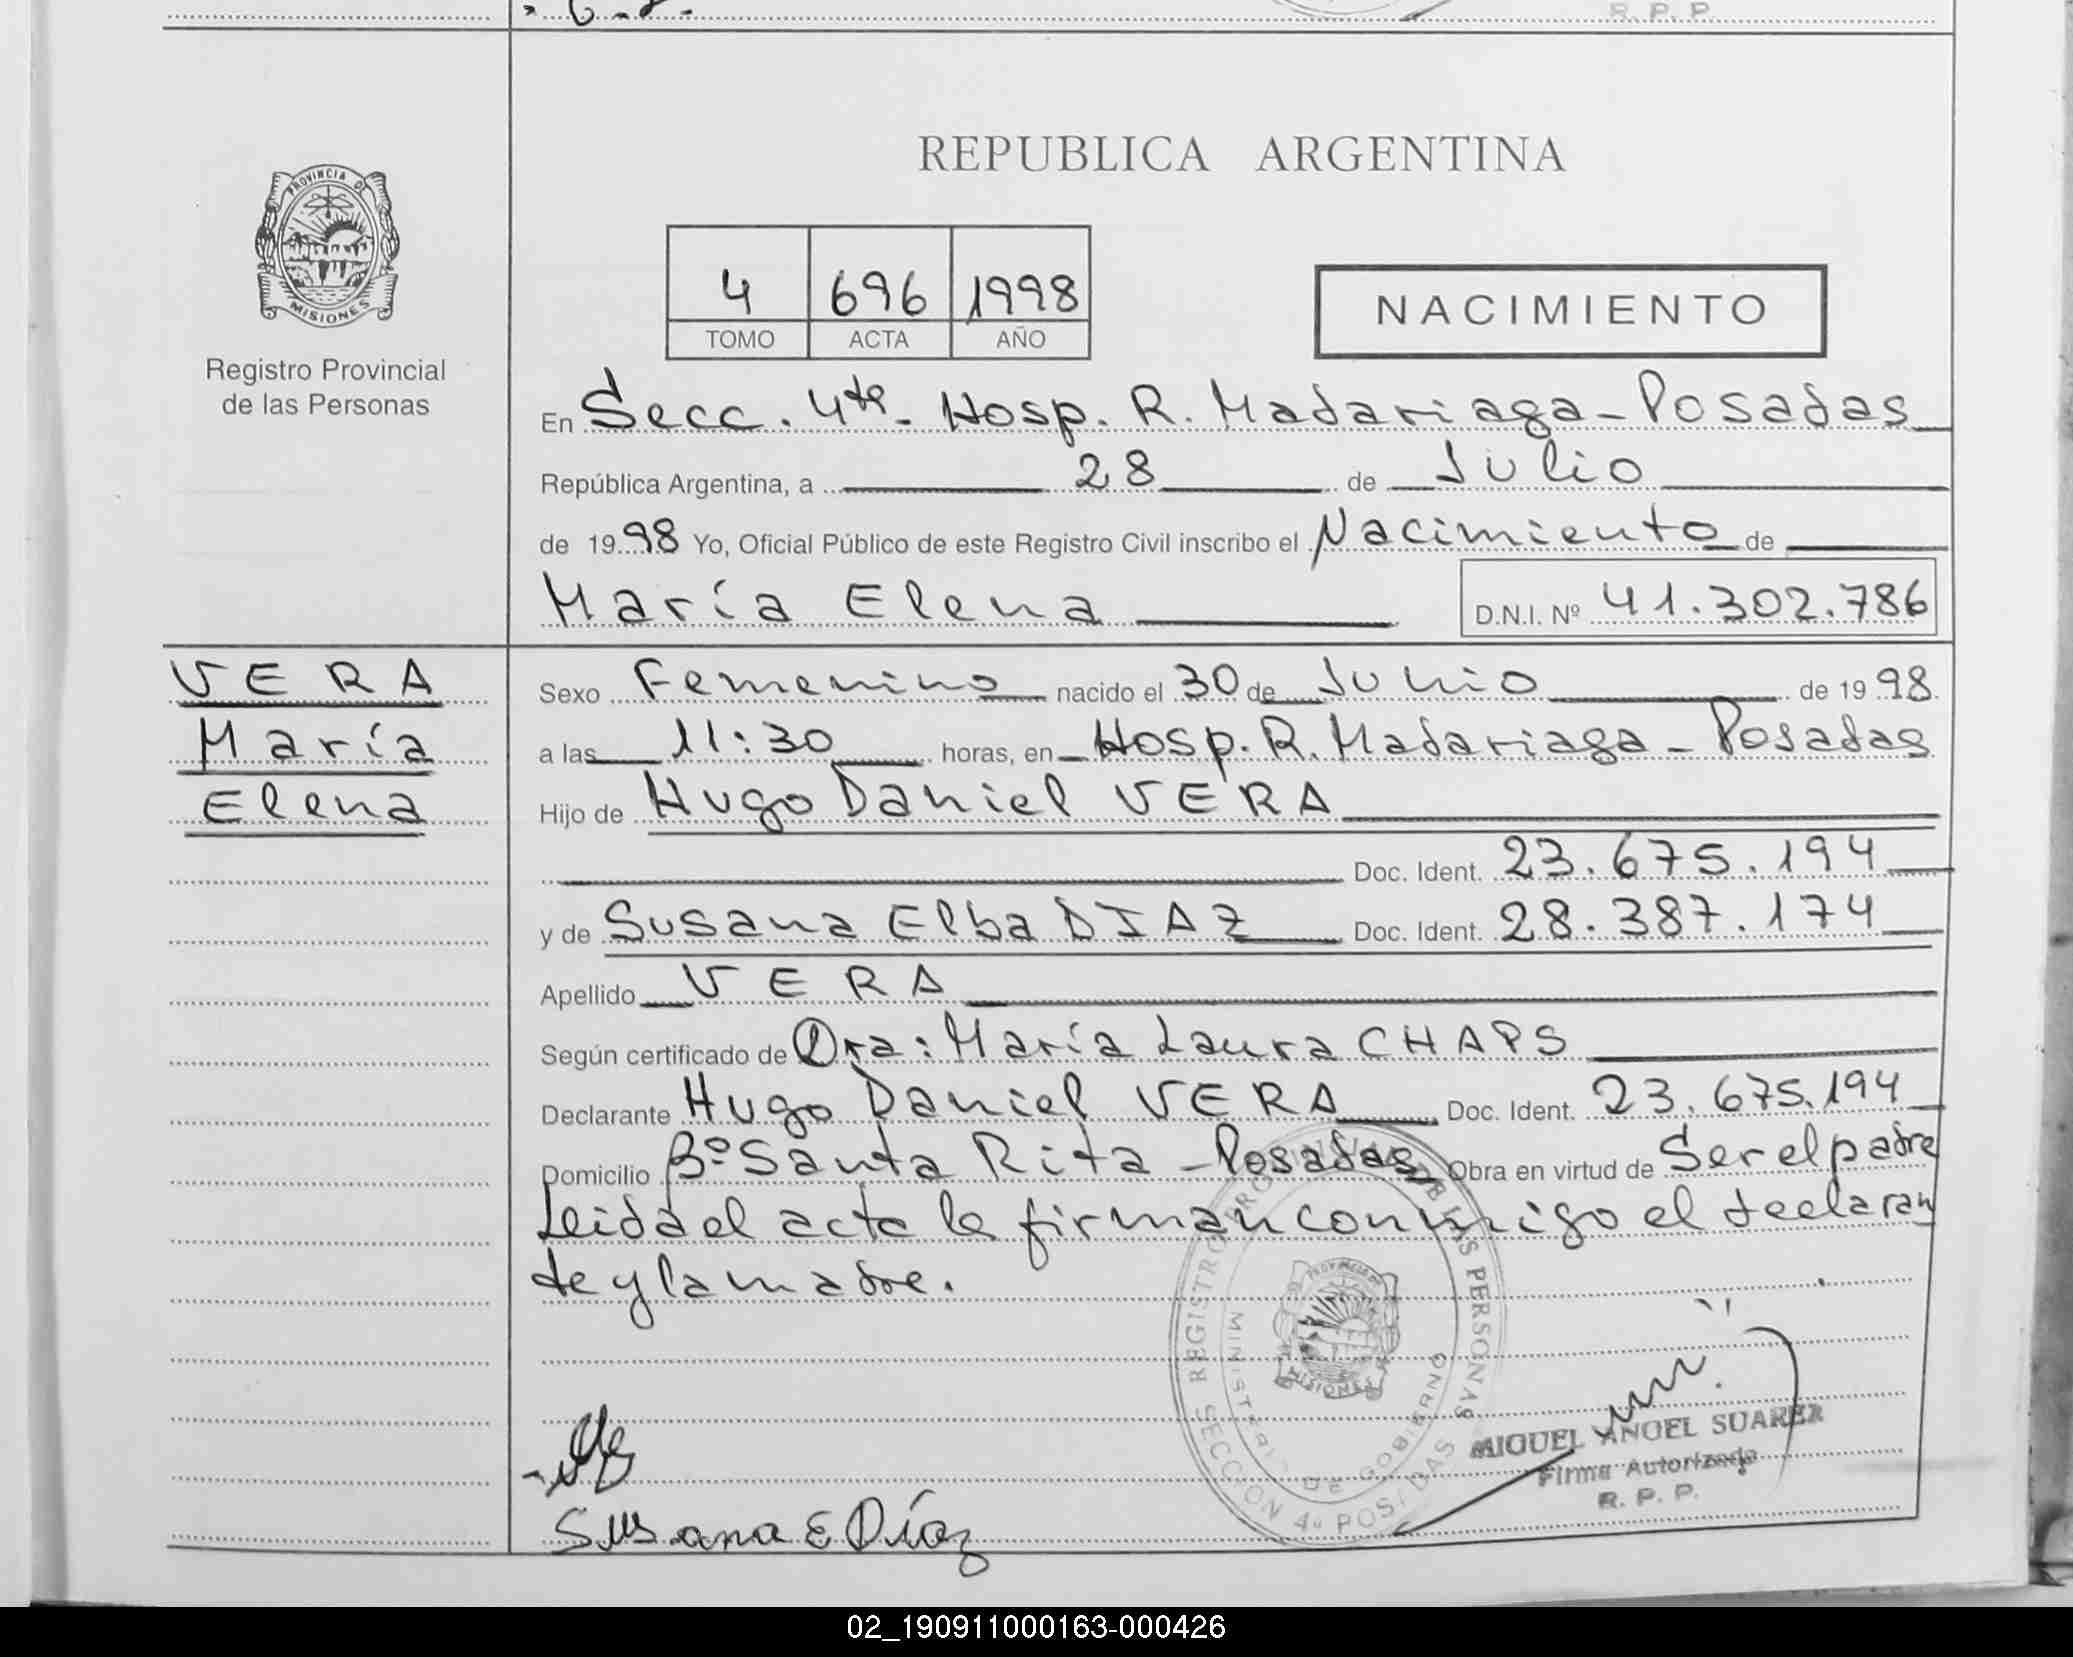 R. P. P.
PROVINCIA DE
MISIONES
Registro Provincial
de las Personas
REPUBLICA ARGENTINA
4 696 1998
TOMO ACTA AÑO
NACIMIENTO
En Secc. 4ta - Hosp. R. Madariaga - Posadas
República Argentina, a 28 de Julio
de 1998 Yo, Oficial Público de este Registro Civil inscribo el Nacimiento de
María Elena D.N.I. Nº 41.302.786
VERA
María
Elena
Sexo Femenino nacido el 30 de Junio de 1998
a las 11:30 horas, en Hosp. R. Madariaga - Posadas
Hijo de Hugo Daniel VERA
Doc. Ident. 23.675.194
y de Susana Elba DIAZ Doc. Ident. 28.387.174
Apellido VERA
Según certificado de Dra: María Laura CHAPS
Declarante Hugo Daniel VERA Doc. Ident. 23.675.194
Domicilio Bº Santa Rita - Posadas Obra en virtud de Ser el padre
Leida el acta la firman conmigo el declaran
te y la madre.
REGISTRO PROVINCIAL DE LAS PERSONAS
MINISTERIO DE GOBIERNO
SECCION 4ª POSADAS
PROVINCIA DE
MISIONES
MIGUEL ANGEL SUAREZ
Firma Autorizada
R. P. P.
Susana E Díaz
02_190911000163-000426